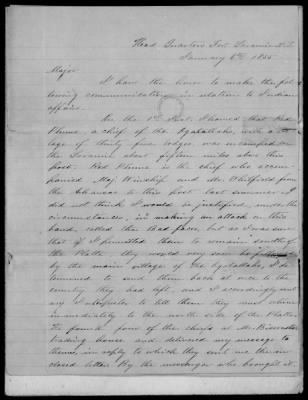 Head Quarters Fort Laramie N.T.
January 6th 1855
Major
I have the honor to make the fol
lowing communication in relation to Indian
affairs.
On the Inst. I learned that Red
Plume, a chief of the Ogalallahs, with a
lage of thirty five lodges, was encamped on
the Laramie above fifteen miles above this
post. Red Plume is the chief who accom
panied Maj Winship and Mr Whitfield from
the Arkansas to this post last summer. I
did not think I would be justified, under the
circumstances, in making an attack on this
band, called the Bad faces, but as I was sure
that if I permitted them to remain south of
the Platte they would very soon be followed
by the main village of the Ogalallahs, I de
termined to send them back at once to the
country they had left, and I accordingly sent
my Interpreter to tell them they must move
immediately to the north side of the Platte.
He found four of the chiefs at Mr Bissonettes
trading house and delivered my message to
them, in reply to which they sent me the in
closed letter. By the messenger who brought it